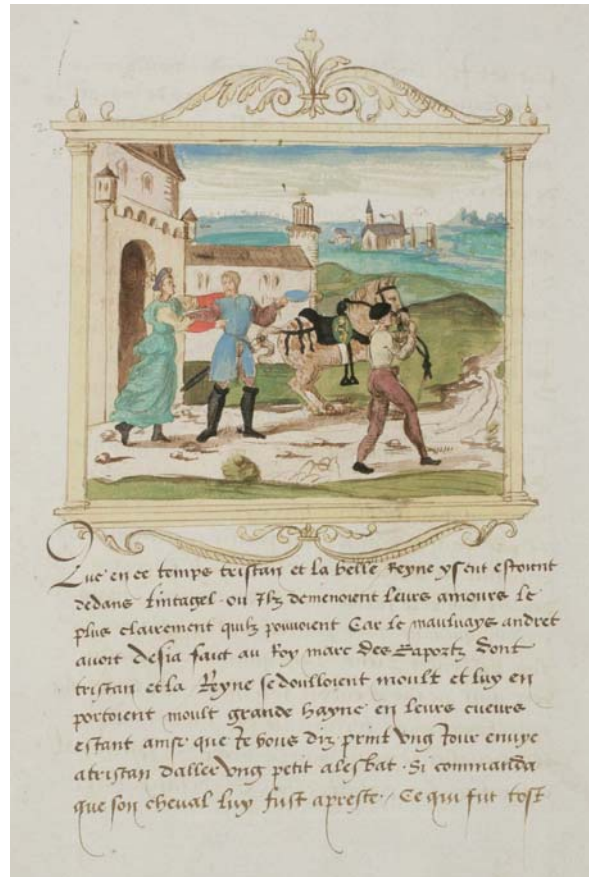 Que en ce temps tristan et la belle Reyne yseut estoient
dedans tintagel ou Ilz demenoient leurs amours le
plus clairement quilz pouvoient Car le maulvays andret
avoit desia faict au Roy marc des Raportz dont
tristan et la Reyne se doulloient moult et luy en
portoient moult grande hayne en leurs cueurs
estant ainsy que Je vous diz print vng Jour envye
a tristan daller vng petit alesbat. Si commanda
que son cheval luy fust apreste / Ce qui fut tost